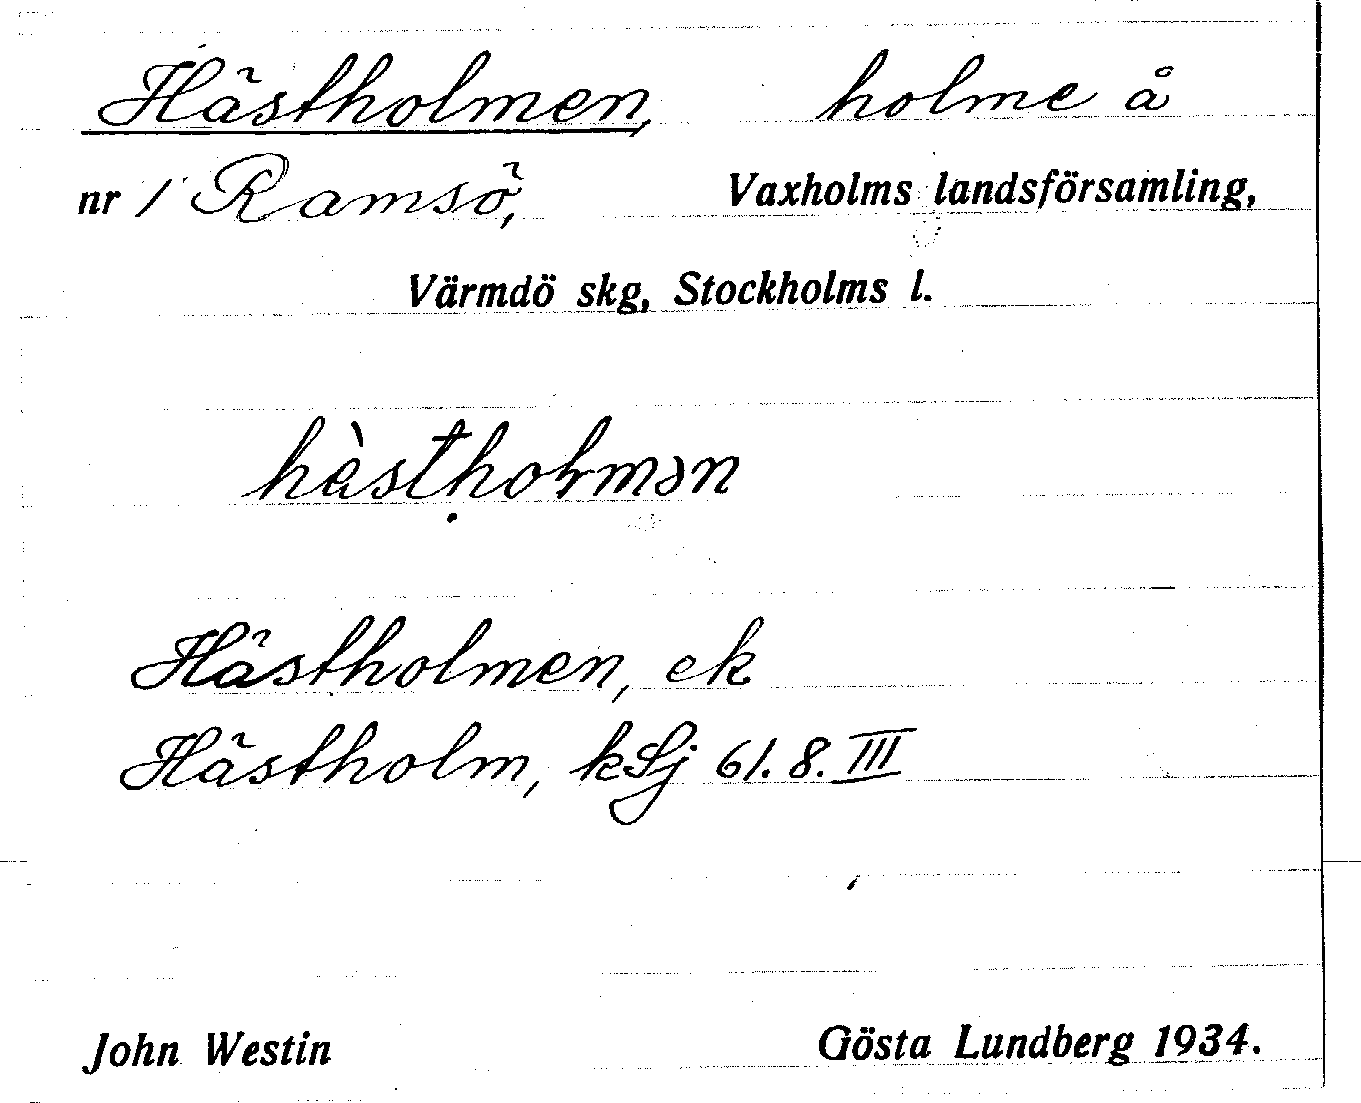 Hästholmen, holme å
nr 1 Ramsö, Vaxholms landsförsamling,
Värmdö skg, Stockholms l.
hàstholmən
Hästholmen, ek
Hästholm, kSj 61. 8. III
John Westin Gösta Lundberg 1934.